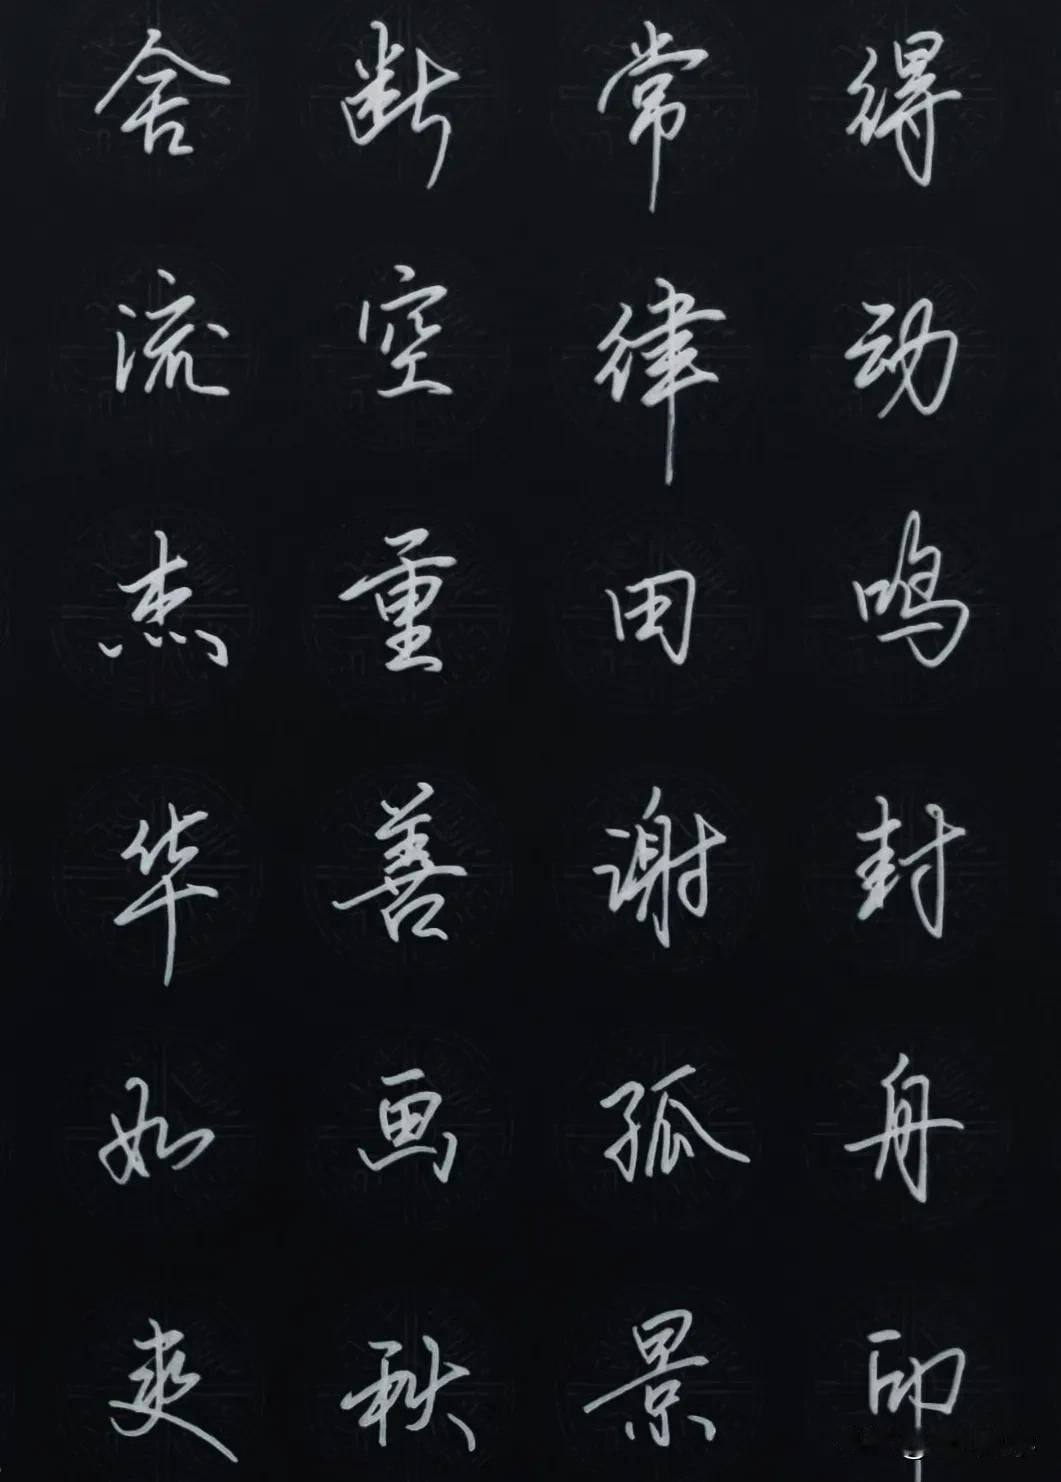 舍断常得
流空律动
杰重田鸣
华善谢封
如画孤舟
爽秋景印